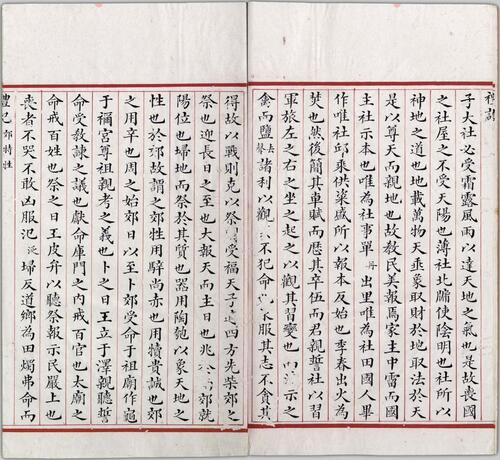 禮記
子大社必受霜露風雨以達天地之氣也是故喪國
之社屋之不受天陽也薄社北牖使陰明也社所以
神地之道也地載萬物天垂象取財於地取法於天
是以尊天而親地也故教民美報焉家主中霤而國
主社示本也唯為社事單丹出里唯為社田國人畢
作唯社丘乘供粢盛所以報本反始也季春出火為
焚也然後簡其車賦而歷其卒伍而君親誓社以習
軍旅左之右之坐之起之以觀其習變也而示之
禽而鹽諸利以觀不犯命也服其志不貪其
得故以戰則克以祭受福天子四方先柴郊之
祭也迎長日之至也大報天而主日也兆郊就
陽位也埽地而祭於其質也器用陶匏以象天地之
性也於郊故謂之郊牲用騂尚赤也用犢貴誠也郊
之用辛也周之始郊日以至卜郊受命于祖廟作龜
于禰宮尊祖親考之義也卜之日王立于澤親聽誓
命受教諫之議也獻命庫門之内戒百官也太廟之
命戒百姓也祭之日王皮弁以聽祭報示民嚴上也
喪者不哭不敢凶服氾泛埽反道鄉為田燭弗命而
禮記 郊特牲